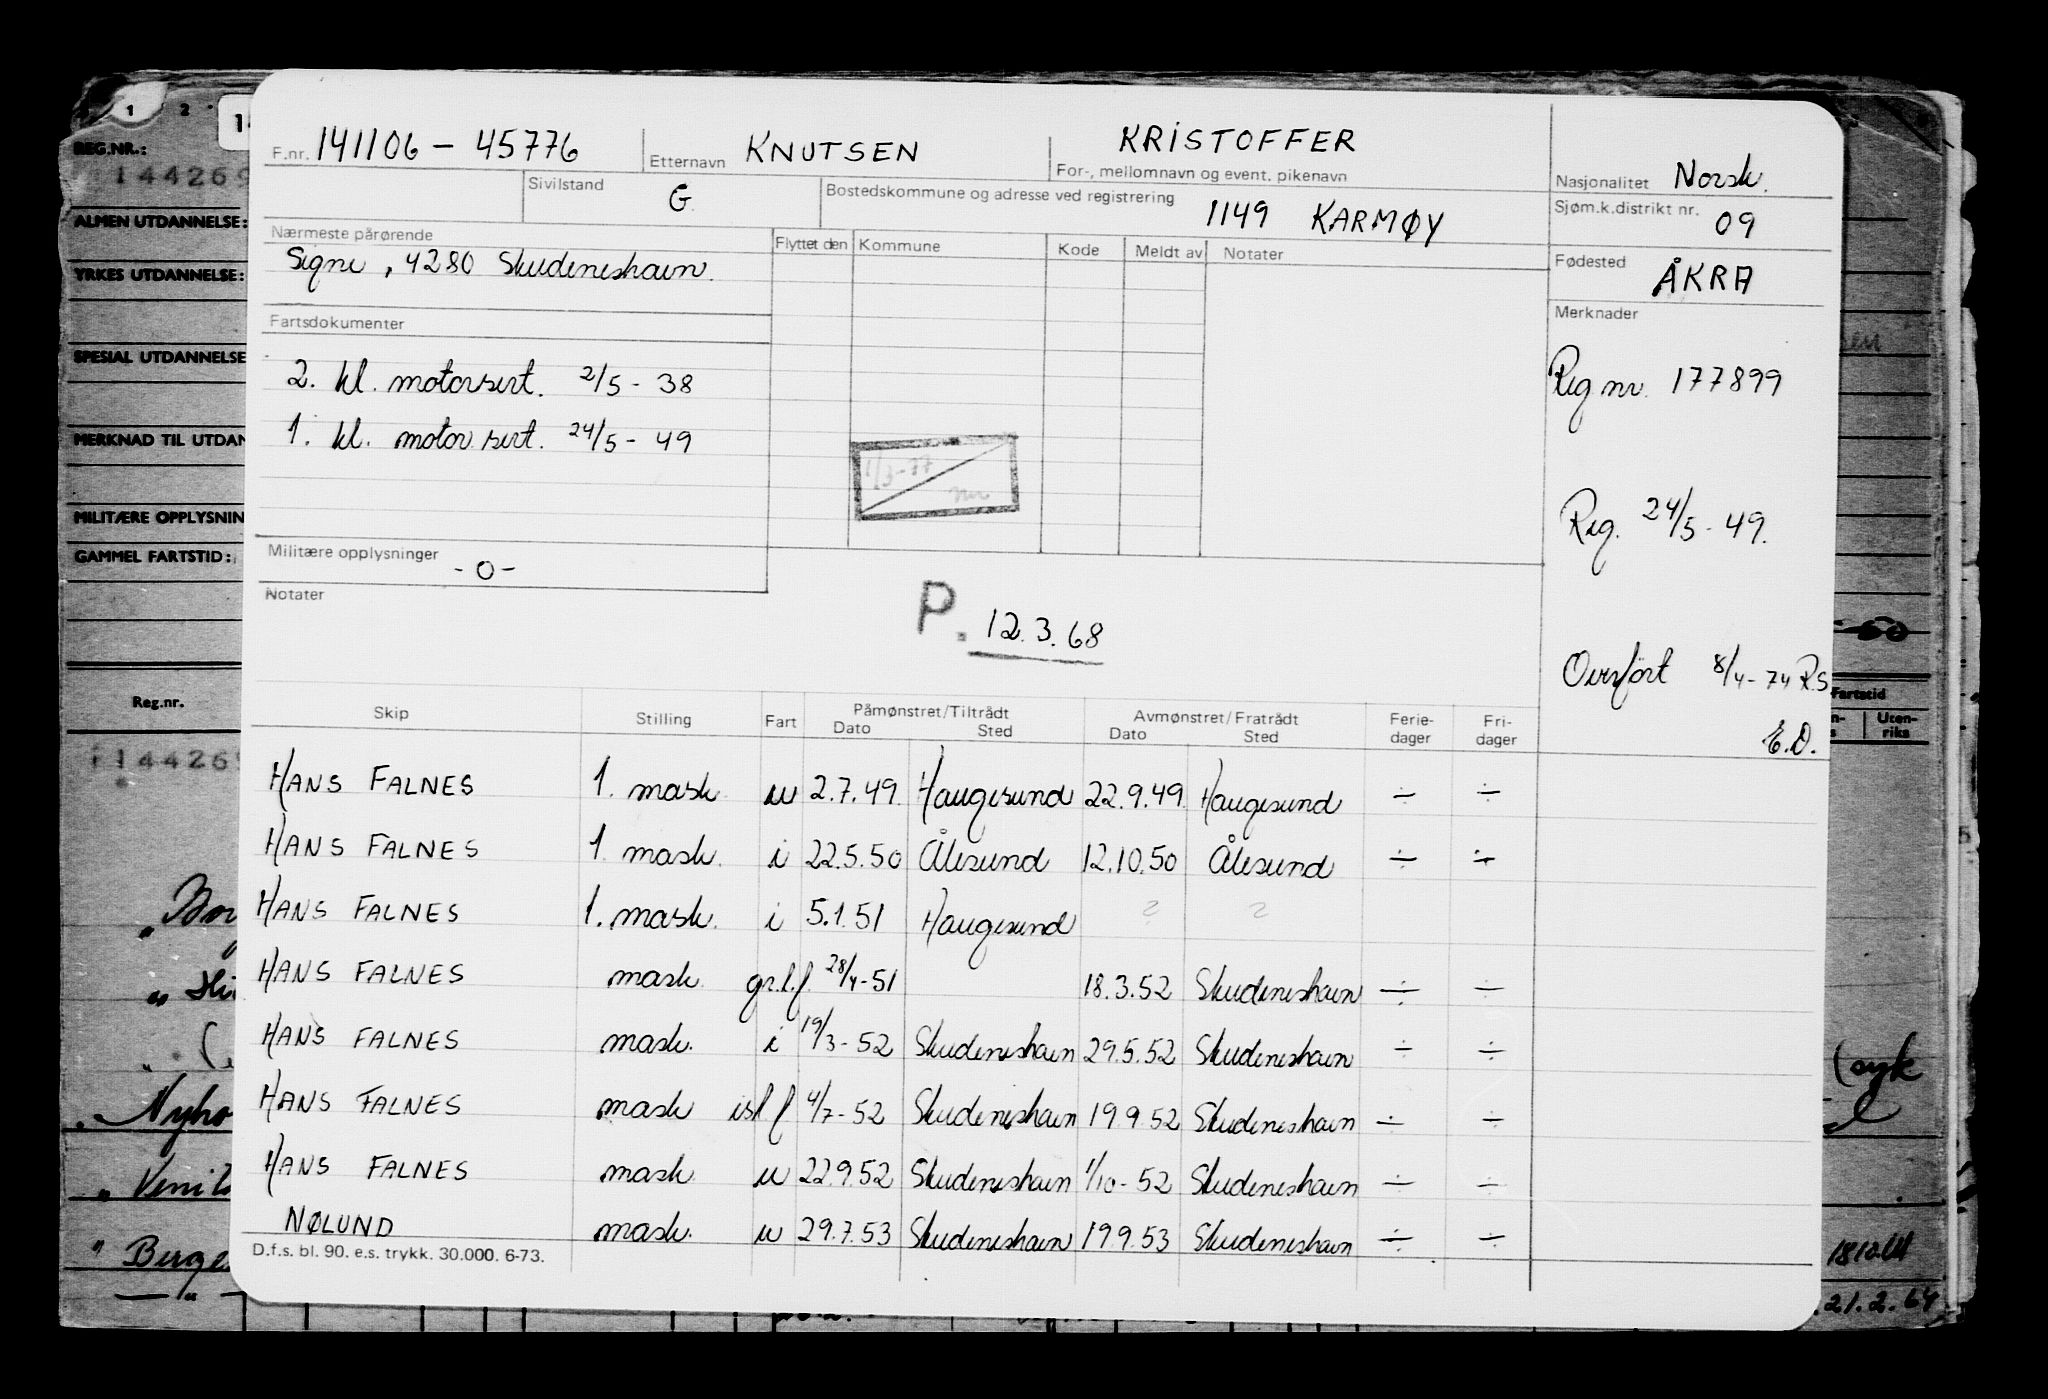 F.nr. 141106 - 45776 Etternavn KNUTSEN KRISTOFFER
For-, mellomnavn og event. pikenavn
Nasjonalitet Norsk.
Sivilstand G. Bostedskommune og adresse ved registrering 1149 KARMØY
Sjøm.k.distrikt nr. 09
Nærmeste pårørende
Signe, 4280 Skudeneshavn.
Flyttet den Kommune Kode Meldt av Notater
Fødested ÅKRA
Fartsdokumenter
2. kl. motorsert. 2/5 - 38
1. kl. motor sert. 24/5 - 49
1/3-77
Merknader
Reg nr. 177899
Reg. 24/5 - 49.
Overført 8/4 - 74 R.S
E.O.
Militære opplysninger - 0 -
Notater
P. 12.3.68
Skip Stilling Fart Påmønstret/Tiltrådt Avmønstret/Fratrådt Ferie- Fri-
Dato Sted Dato Sted dager dager
HANS FALNES 1. mask u 2.7.49. Haugesund 22.9.49 Haugesund ÷ ÷
HANS FALNES 1 mask. i 22.5.50 Ålesund 12.10.50 Ålesund ÷ ÷
HANS FALNES 1. mask. i 5.1.51 Haugesund ? ?
HANS FALNES mask gr.l.f. 28/4-51 18.3.52 Skudeneshavn ÷ ÷
HANS FALNES mask. i 19/3-52 Skudeneshavn 29.5.52 Skudeneshavn ÷ ÷
HANS FALNES mask isl f 4/7-52 Skudeneshavn 19.9.52 Skudeneshavn ÷ ÷
HANS FALNES mask u 22.9.52 Skudeneshavn 1/10-52 Skudeneshavn ÷ ÷
NØLUND mask. u 29.7.53 Skudeneshavn 19.9.53 Skudeneshavn ÷ ÷
D.f.s. bl. 90. e.s. trykk. 30.000. 6-73.
1 2
REG.NR.:
144269
ALMEN UTDANNELSE:
YRKES UTDANNELSE:
SPESIAL UTDANNELSE
MERKNAD TIL UTDAN
MILITÆRE OPPLYSNIN
GAMMEL FARTSTID:
Reg.nr.
144269
Fartstid
Uten-
riks
(syk
21.2.64